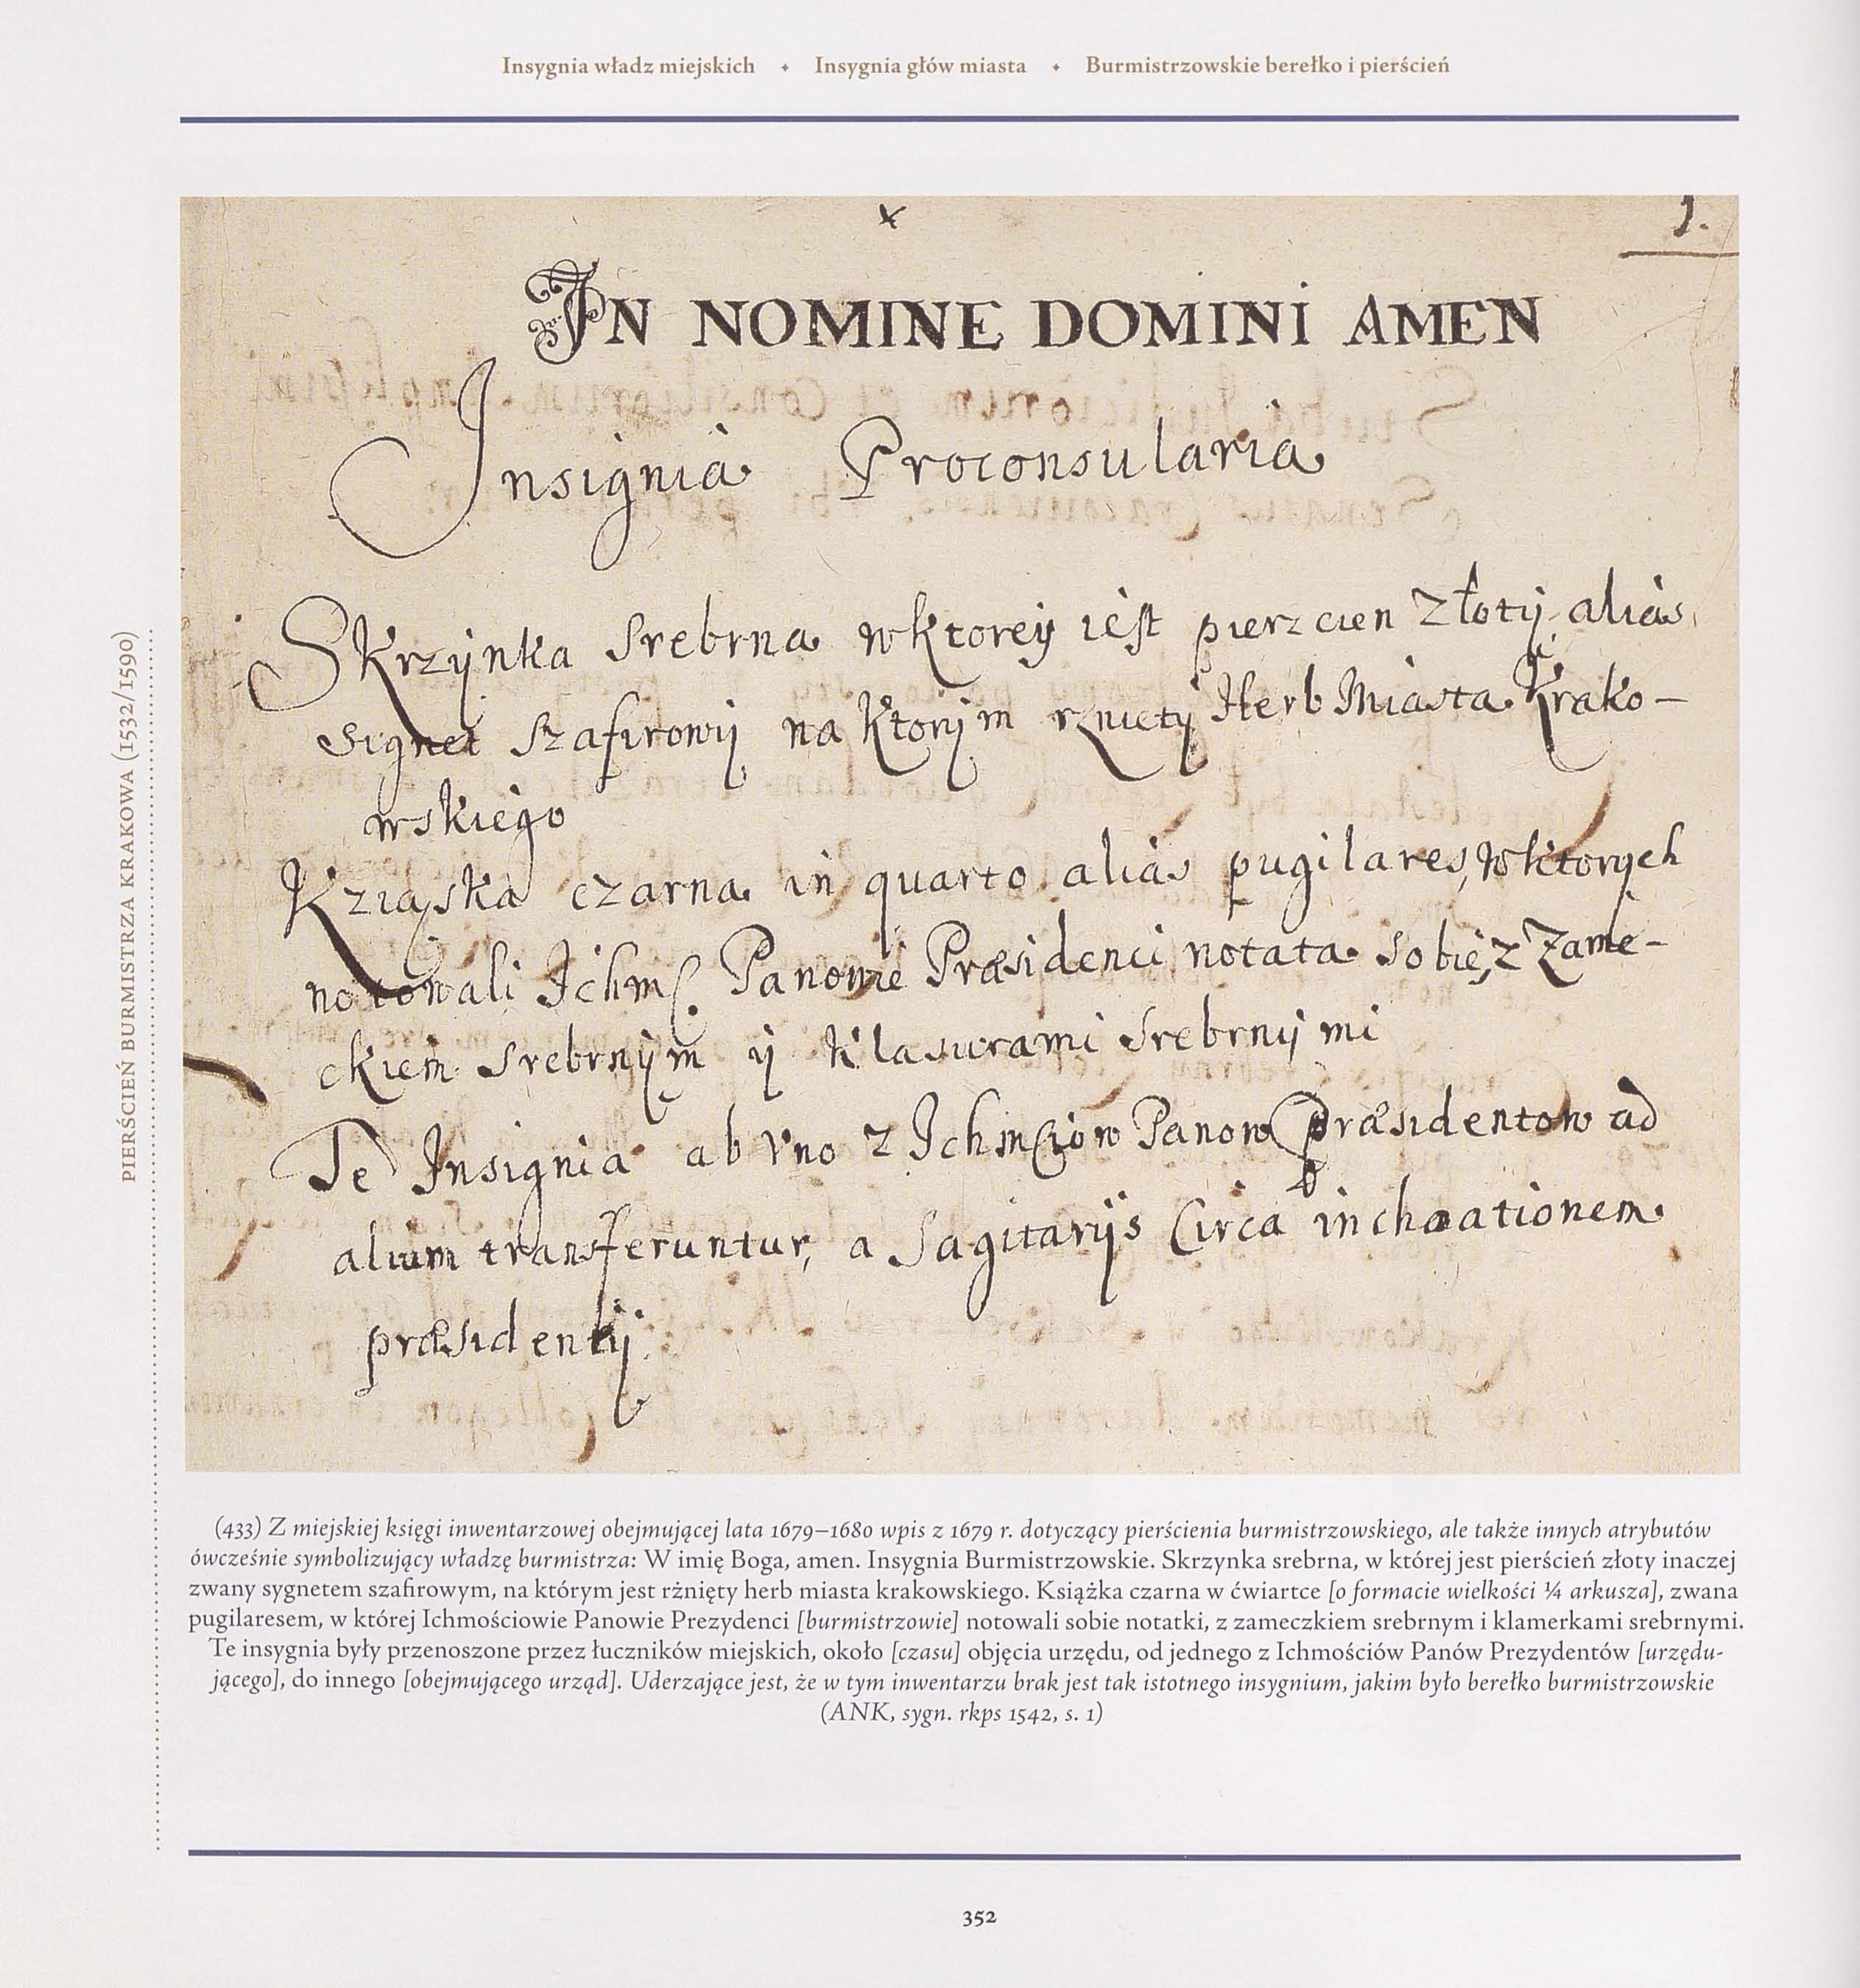 Insygnia władz miejskich ✦ Insygnia głów miasta ✦ Burmistrzowskie berełko i pierścień
PIERŚCIEŃ BURMISTRZA KRAKOWA (1532/1590)
1.
IN NOMINE DOMINI AMEN
Insignia Proconsularia
Skrzynka srebrna w ktorey iest pierzcien złoty alias
signet szafirowy na ktorym rznięty Herb Miasta Krako-
wskiego
Kziąska czarna in quarto alias pugilares, w ktorych
notowali Ichmć. Panowie Præsidenci notata sobie, z Zame-
ckiem srebrnym y klasurami srebrnymi
Te Insignia ab vno z Ichmciow Panow Præsidentow ad
alium transferuntur, a Sagitarijs circa inchoationem
præsidentij.
(433) Z miejskiej księgi inwentarzowej obejmującej lata 1679–1680 wpis z 1679 r. dotyczący pierścienia burmistrzowskiego, ale także innych atrybutów
ówcześnie symbolizujący władzę burmistrza: W imię Boga, amen. Insygnia Burmistrzowskie. Skrzynka srebrna, w której jest pierścień złoty inaczej
zwany sygnetem szafirowym, na którym jest rżnięty herb miasta krakowskiego. Książka czarna w ćwiartce [o formacie wielkości ¼ arkusza], zwana
pugilaresem, w której Ichmościowie Panowie Prezydenci [burmistrzowie] notowali sobie notatki, z zameczkiem srebrnym i klamerkami srebrnymi.
Te insygnia były przenoszone przez łuczników miejskich, około [czasu] objęcia urzędu, od jednego z Ichmościów Panów Prezydentów [urzędu-
jącego], do innego [obejmującego urząd]. Uderzające jest, że w tym inwentarzu brak jest tak istotnego insygnium, jakim było berełko burmistrzowskie
(ANK, sygn. rkps 1542, s. 1)
352